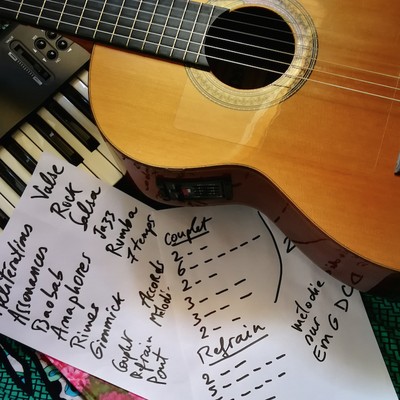 Valse
Rock
Salsa
Jazz
Rumba
7 temps
Assonances
Baobab
Anaphores
Rimes
Gimmick
Accords
Mélodi
Couplet
Refrain
Pont
Couplet
2 --
6 --
2 ---
3 ----
3 ---
2 --
Refrain
2 ----
5 ----
3 ---
2 --
mélodie
sur
Em G D C